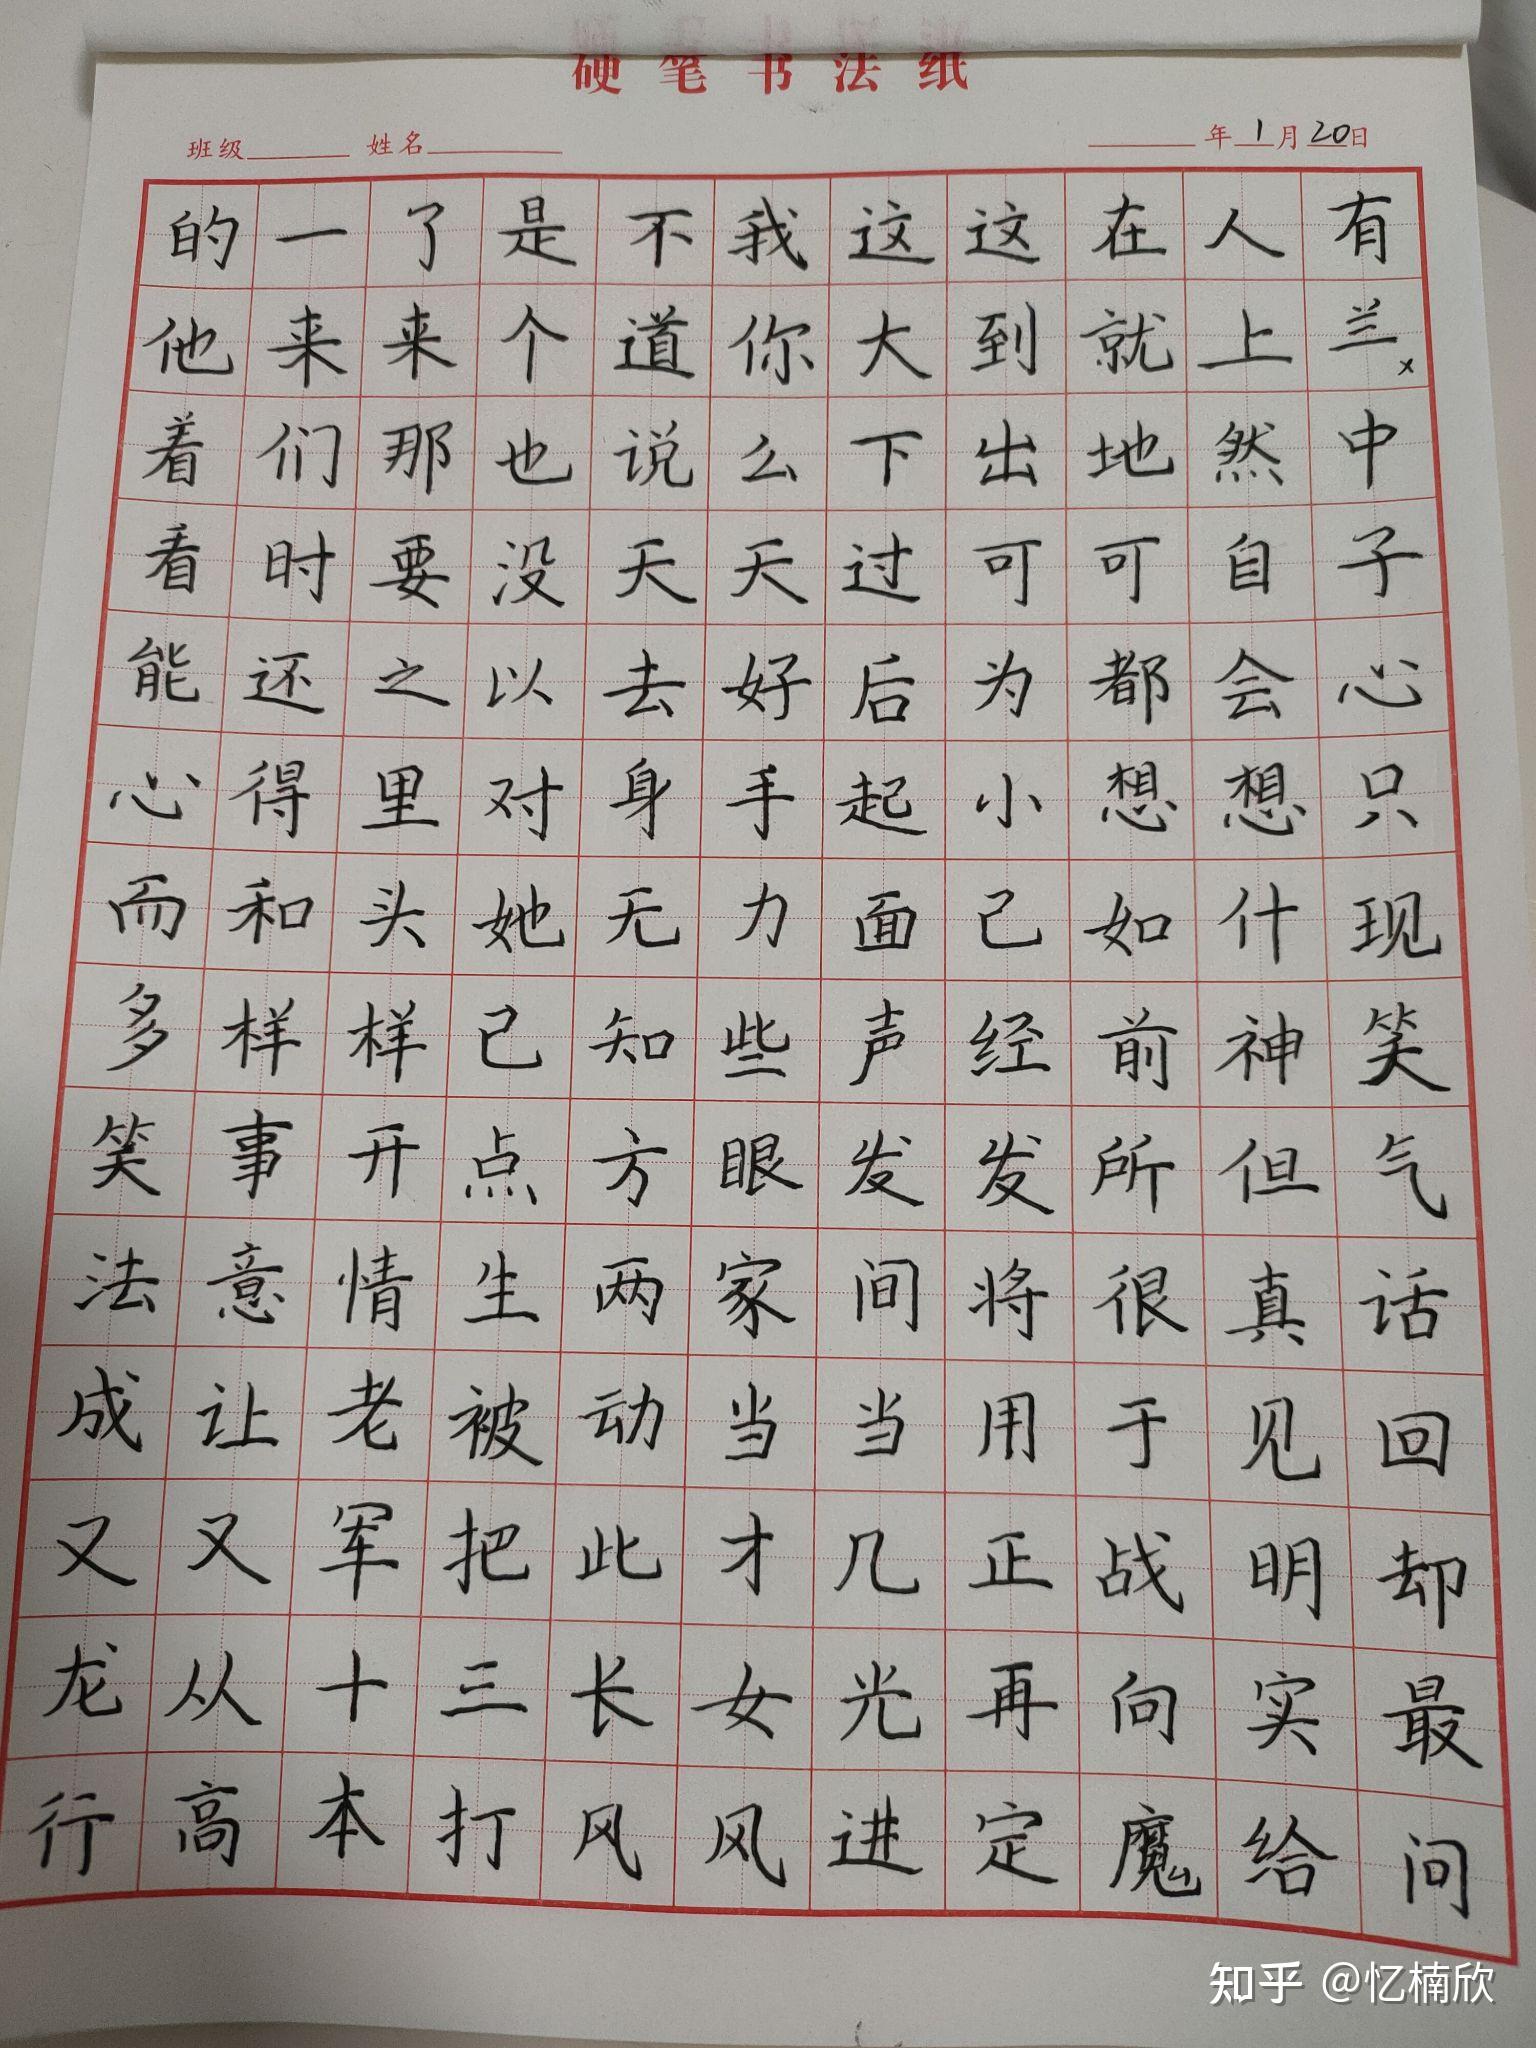 硬笔书法纸
班级 姓名 年1月20日
的一了是不我这这在人有
他来来个道你大到就上兰x
着们那也说么下出地然中
看时要没天天过可可自子
能还之以去好后为都会心
心得里对身手起小想想只
而和头她无力面己如什现
多样样已知些声经前神笑
笑事开点方眼发发所但气
法意情生两家间将很真话
成让老被动当当用于见回
又又军把此才几正战明却
龙从十三长女光再向实最
行高本打风风进定魔给问
知乎 @忆楠欣